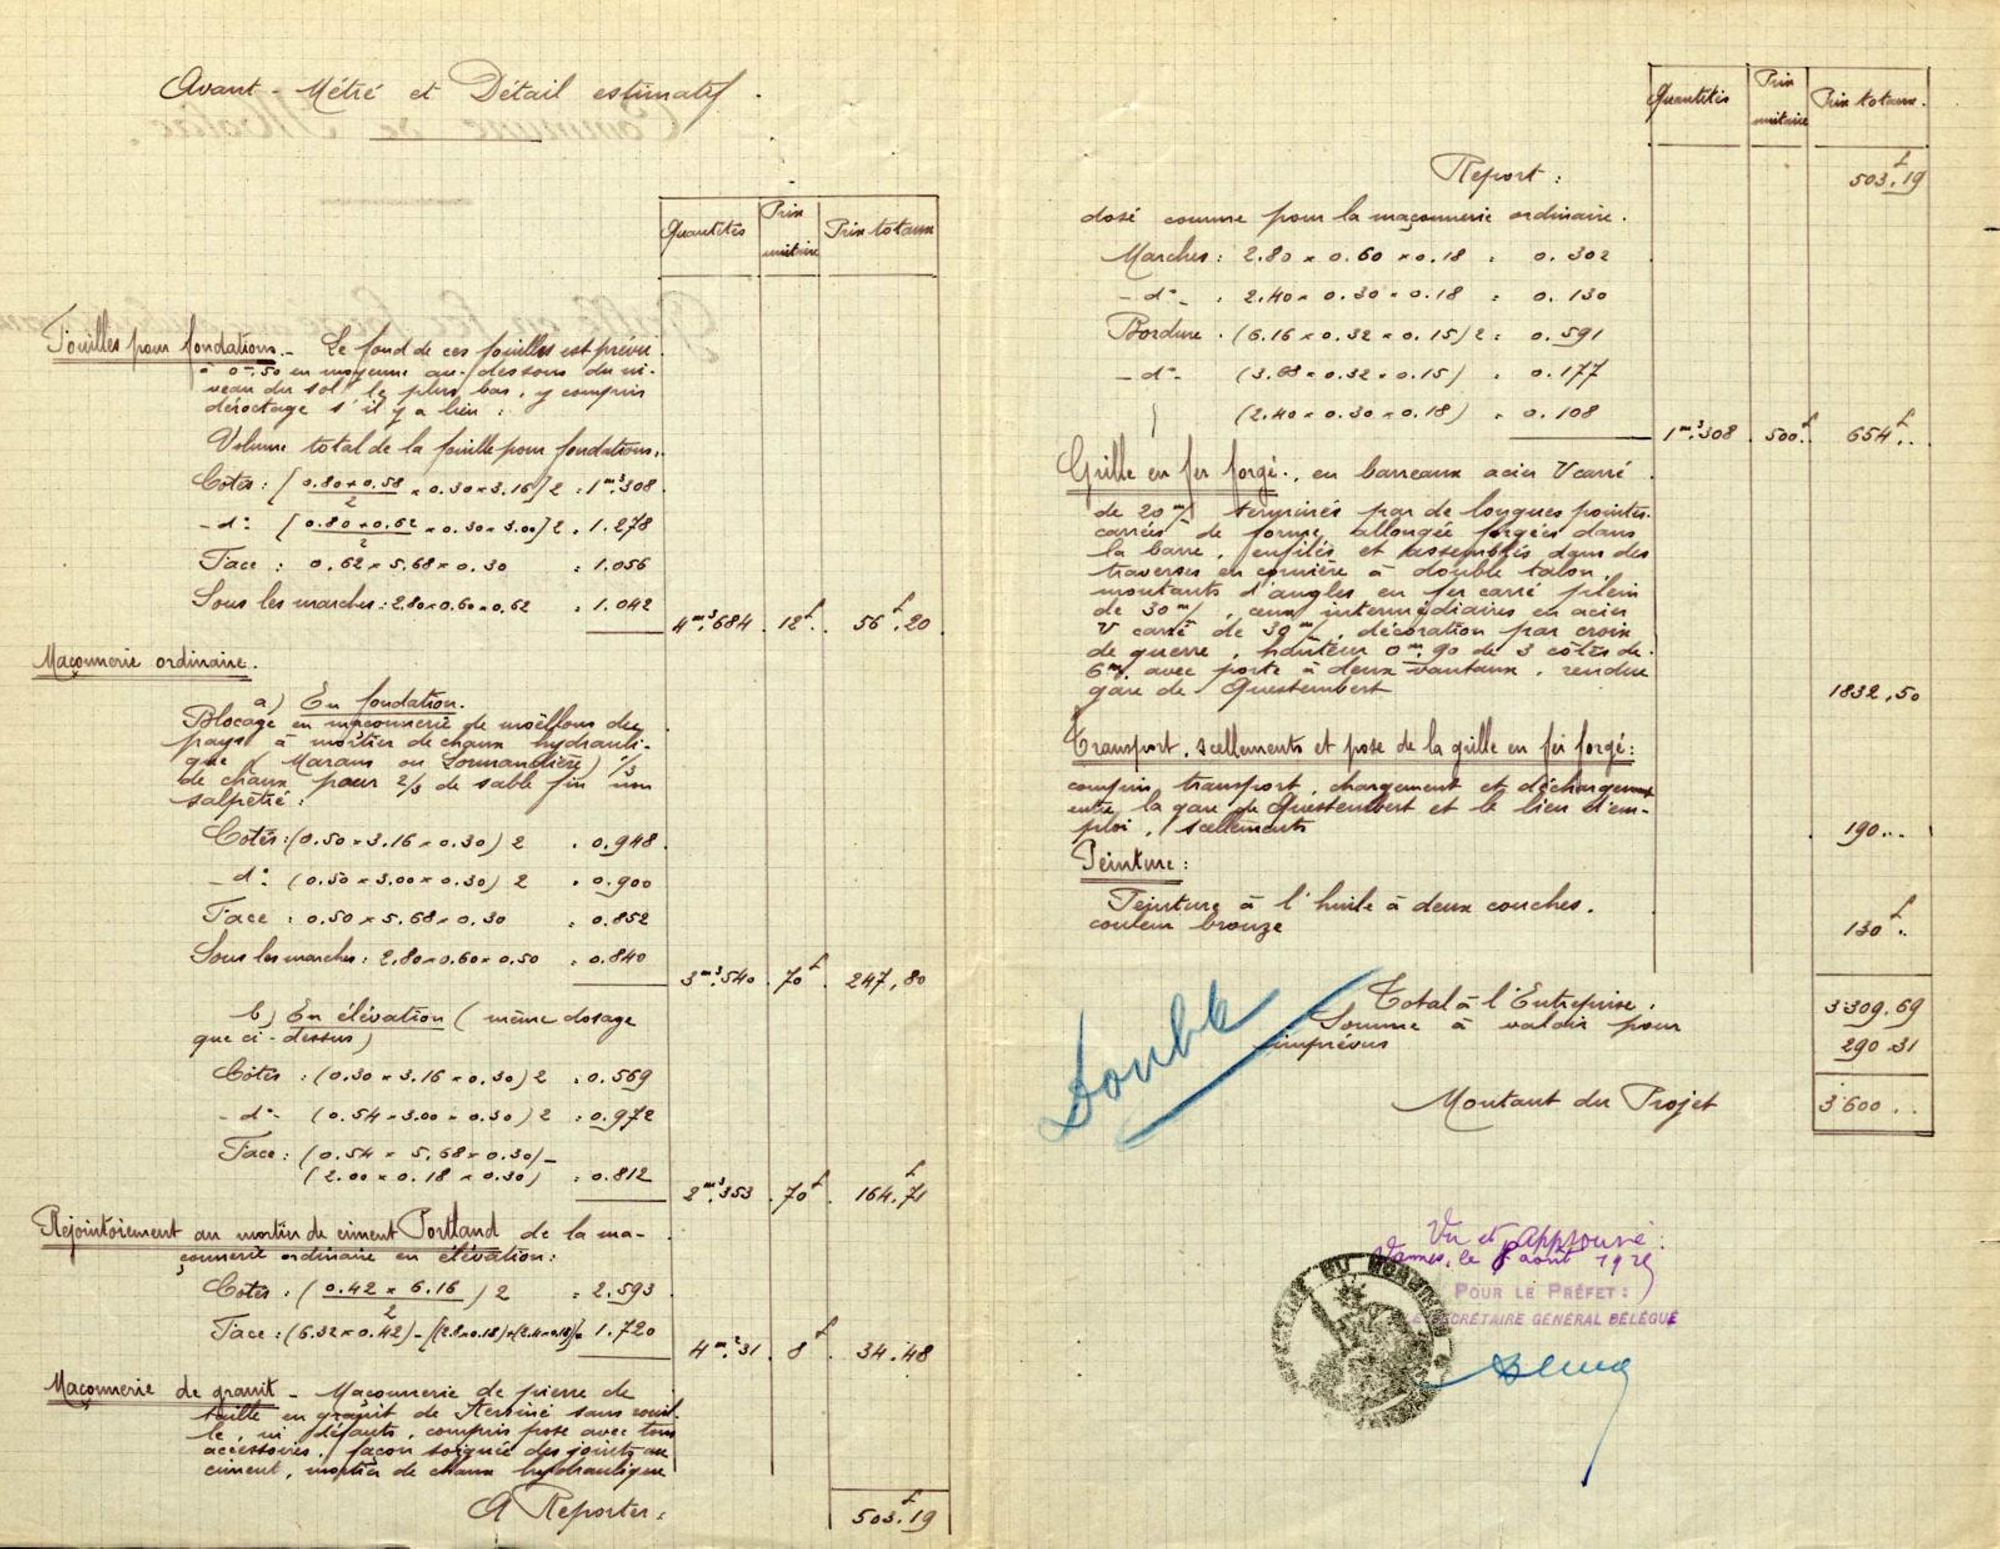 Avant-Métré et Détail estimatif.
Quantités
Prix unitaire
Prix totaux
Fouilles pour fondations. - Le fond de ces fouilles est prévu
à 0m,50 en moyenne au-dessous du ni-
veau du sol le plus bas, y compris
déroctage s'il y a lieu :
Volume total de la fouille pour fondations.
Cotés : [0.80+0.58/2 × 0.30×3.16] 2 = 1m³,308
- d° - [0.80+0.62/2 × 0.30×3.00] 2 = 1.278
Face : 0.62 × 5.68 × 0.30 = 1.056
Sous les marches : 2.80×0.60×0.62 = 1.042
4m³,684 12f. 56f,20
Maçonnerie ordinaire.
a) En fondation.
Blocage en maçonnerie de moëllons du
pays à mortier de chaux hydrauli-
que (Marans ou Lormandière) 1/3
de chaux pour 2/3 de sable fin non
salpêtré :
Cotés : (0.50×3.16×0.30) 2 = 0.948
- d° - (0.50×3.00×0.30) 2 = 0.900
Face : 0.50×5.68×0.30 = 0.852
Sous les marches : 2.80×0.60×0.50 = 0.840
3m³,540 70f. 247,80
b) En élévation (même dosage
que ci-dessus)
Côtés : (0.30×3.16×0.30) 2 = 0.569
- d° - (0.54×3.00×0.30) 2 = 0.972
Face : (0.54 × 5.68×0.30) -
(2.00×0.18×0.30) = 0.812
2m³,353 70f. 164f,71
Rejointoiement au mortier de ciment Portland de la ma-
çonnerie ordinaire en élévation :
Cotés : (0.42 × 6.16/2) 2 = 2.593
Face : (6.32×0.42) - [(2.8×0.18)+(2.4×0.18)] = 1.720
4m²,31 8f. 34.48
Maçonnerie de granit - Maçonnerie de pierre de
taille en granit de sans rouil-
le, ni défauts, compris pose avec tous
accessoires, façon soignée des joints au
ciment, mortier de chaux hydraulique
A Reporter : 503f,19
Quantités
Prix unitaire
Prix totaux.
Report : 503f,19
dosé comme pour la maçonnerie ordinaire.
Marches : 2.80 × 0.60 × 0.18 = 0.302
- d° - : 2.40 × 0.30 × 0.18 = 0.130
Bordure : (6.16×0.32×0.15) 2 = 0.591
- d° - (3.68×0.32×0.15) = 0.177
(2.40×0.30×0.18) = 0.108
1m³,308 500f. 654f..
Grille en fer forgé., en barreaux acier V carré
de 20m/m terminés par de longues pointes
carrées de forme allongée forgées dans
la barre, enfilés et assemblés dans des
traverses en cornière à double talon,
montants d'angles en fer carré plein
de 30m/m, ceux intermédiaires en acier
V carré de 30m/m, décoration par croix
de guerre, hauteur 0m,90 de 3 côtés de
6m, avec porte à deux vantaux, rendue
gare de Questembert
1832,50
Transport, scellements et pose de la grille en fer forgé :
compris transport, chargement et déchargement
entre la gare de Questembert et le lieu d'em-
ploi, scellements
190..
Peinture :
Peinture à l'huile à deux couches.
couleur bronze
130f..
Total à l'Entreprise : 3.309.69
Somme à valoir pour
imprévus 290.31
Montant du Projet 3.600..
Double
Vu et approuvé :
Vannes, le 8 août 192
POUR LE PRÉFET :
LE SECRÉTAIRE GÉNÉRAL DÉLÉGUÉ